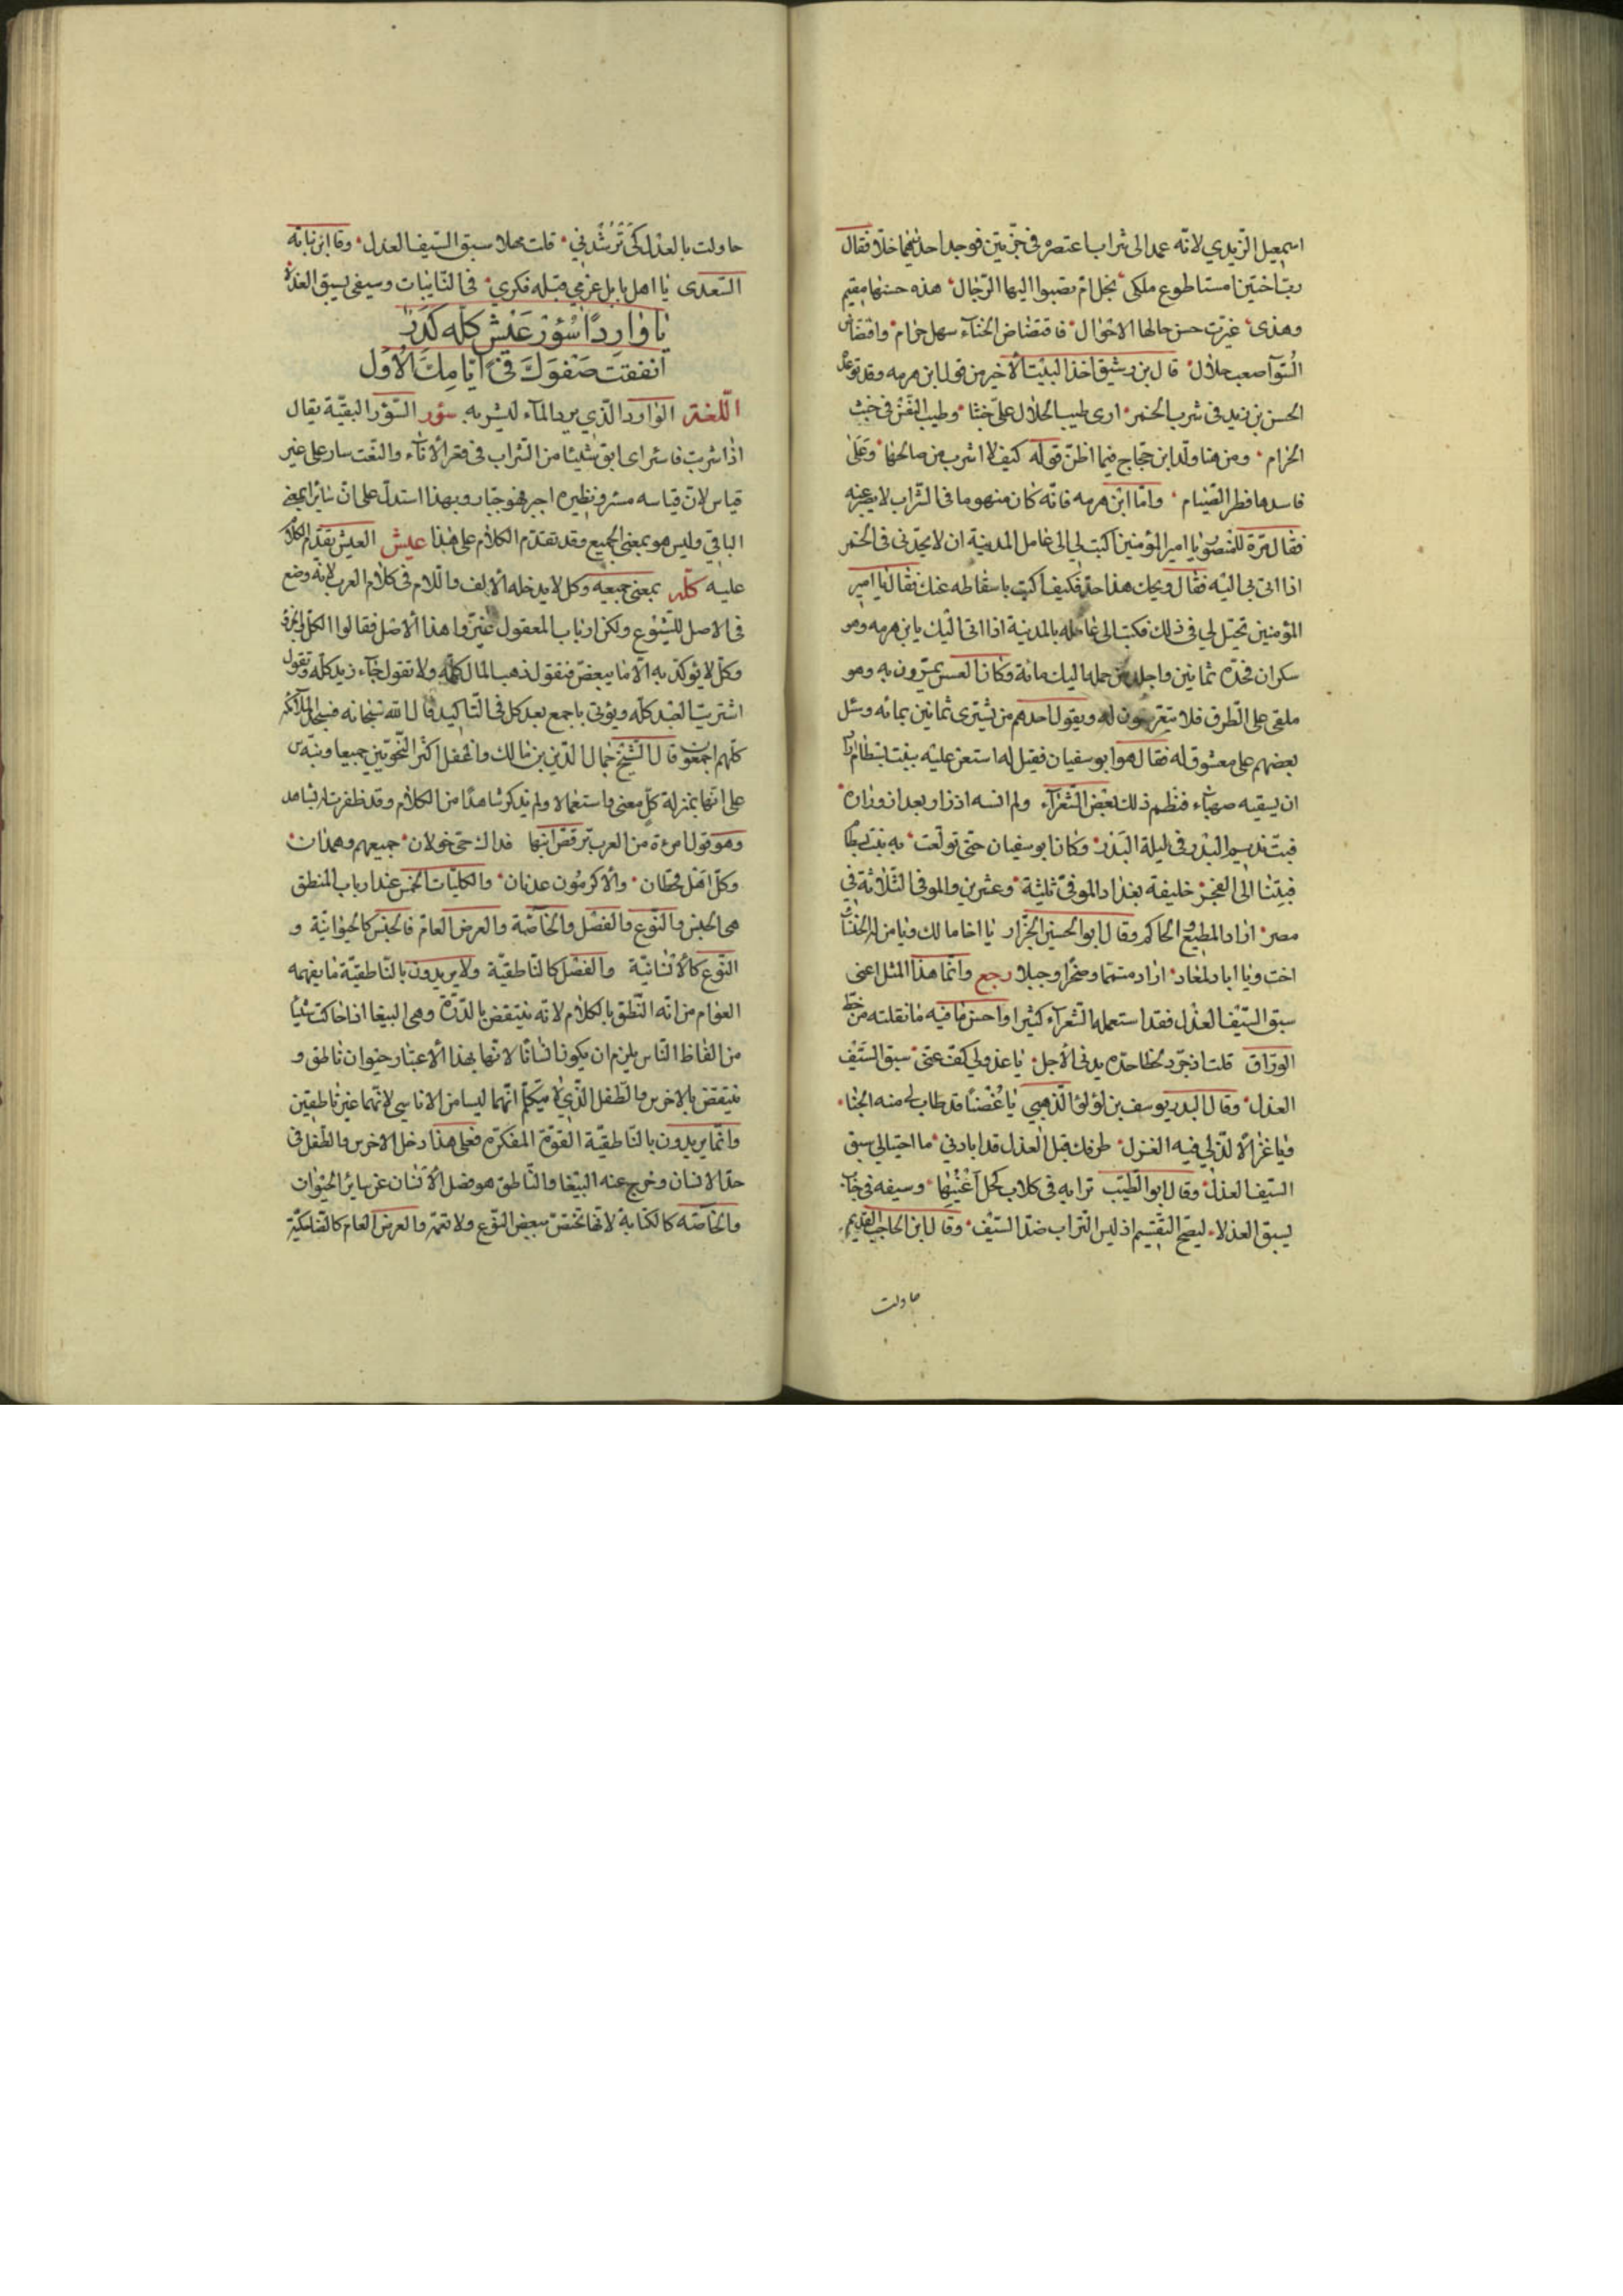 اسمعيل الزيدي لانه عمد الى شراب اعتصره في جرّتين فوجد احديهما خلّا فقال
ربّ اختين امستا طوع ملكى نجل امّ يصبوا اليها الرّجال هذه حسنها مقيم
وهذى غيّرت حسن حالها الاحوال فاقتضاض الحسناء سهل حرام وافتضاض
السّوآ صعب حلال قال بن رشيق اخذ البيت الاخير من قول ابن هرمه وقد توعّد
الحسن بن زيد فى شرب الخمر ارى طيب الحلال علىّ خبثا وطيب النفس فى خبث
الحرام ومن هنا ولّد ابن حجاج فيما اظنّ قوله كيف لا اشرب من صالحها وعلى
فاسدها فطر الصّيام وامّا ابن هرمه فانّه كان منهوما فى الشراب لا يصبر عنه
فقال مرّة للمنصور يا امير المؤمنين اكتب لى الى عامل المدينة ان لا يحدّنى فى الخمر
اذا اتى بى اليه فقال ويحك هذا حدّ فكيف اكتب باسقاطه عنك فقال يا امير
المؤمنين تحيّل لى فى ذلك فكتب الى عامله بالمدينة اذا اتاك يابن هرمه وهو
سكران فحدّه ثمانين واجلد من حمله اليك مائة وكان العسس يمرّون به وهو
ملقى على الطرق فلا يتعرّضون له ويقول احدهم من يشترى ثمانين بمائه وسئل
بعضهم على معشوق له فقال هو ابو سفيان فقيل له استعن عليه ببنت بسطام
ان يسقيه صهباء فنظم ذلك بعض الشعرآء ولم انسه اذ زار بعد ازوراره
فبت نديم البدر فى ليلة البدر وكان ابو سفيان حتى تولّعت به بنت بسطام
فبتنا الى الفجر خليفة بغداد الموفى ثلثة وعشرين والموفى الثلاثة فى
مصر اراد المطيع والحاكم وقال ابو الحسين الجزّار يا اخا مالك ويا من له الخنساء
اخت ويا ابا دلمعاد اراد متمما وصخرا وجبلا رجع وانّما هذا المثل اعنى
سبق السّيف العذل فقد استعمله الشعرآء كثيرا واحسن ما فيه ما نقلته من خطّ
الورّاق قلت اذ جرّد لحظا حدّه يدنى الاجل يا عذولى كفّ عنّى سبق السّيف
العذل وقال البدر يوسف بن لؤلؤ الذّهبى يا غُصنًا قد طاب لى منه الجنا
ويا غزالًا لذّ لى فيه الغزل طرفك قبل العذل قد ابادنى ما احتيالى سبق
السّيف العذل وقال ابو الطيّب ترابه فى كلاب كحل اعينها وسيفه فى جناب
يسبق العذلا ليصحّ التقسيم اذ ليس التراب ضدّ السّيف وقال ابن الحاجب القديم
حاولت
حاولت بالعذل كى ترشّدنى قلت مهلا سبق السّيف العذل وقا ابن نباته
السّعدى يا اهل بابل عزمى قبله فكرى فى النّايبات وسيفى يسبق العذلا
يا واردًا سُؤر عَيْش كلّه كَدَرٌ
انفقت صَفْوَكَ فى ايّامِكَ الأُوَل
اللغة الوارد الّذي يرد المآء ليشربه سؤر السّؤر البقيّة يقال
اذا شربت فاسئر اى ابق شيئا من الشراب فى قعر الاناء والنعت سار على غير
قياس لانّ قياسه مسئر ونظيره اجبر فهو جبّار وبهذا استدلّ على انّ سائر بمعنى
الباقى وليس هو بمعنى الجميع وقد تقدّم الكلام على هذا عيش العيش تقدّم الكلام
عليه كلّه بمعنى جميعه وكل لا يدخله الالف واللام فى كلام العرب لانّه وضع
فى الاصل للشيوع ولكن ارباب المعقول غيّروا هذا الاصل فقالوا الكل والجزء
وكلّ لا يؤكّد به الّا ما يبعض فتقول ذهب المال كلّه ولا تقول جآء زيد كلّه وتقول
اشتريت العبد كلّه ويؤتى باجمع بعد كل فى التاكيد قال الله سبحانه فسجد الملآئكة
كلّهم اجمعون قال الشيخ جمال الدّين بن مالك واغفل اكثر النّحويّين جميعا ونبّه س
على انّها بمنزلة كلّ معنى واستعمالا ولم يذكر شاهدًا من الكلام وقد ظفرت له بشاهد
وهو قول امرءة من العرب ترقّص ابنها فداك حىّ خولان جميعهم وهمدان
وكلّ اهل قحطان والاكرمون عدنان والكليّات الخمس عند ارباب المنطق
هى الجنس والنّوع والفصل والخاصّة والعرض العام فالجنس كالحيوانيّة و
النّوع كالانسانيّة والفصل كالنّاطقيّة ولا يريدون بالنّاطقيّة ما يفهمه
العوام من انّه النّطق بالكلام لانّه ينتقض بالدّرّة وهى الببغا اذا حاكت شيئا
من الفاظ النّاس يلزم ان يكون انسانًا لانّها بهذا الاعتبار حيوان ناطق و
ينتقض بالاخرس والطفل الّذي لا يتكلّم انّهما ليسا من الاناسى لانّهما غير ناطقين
وانّما يريدون بالنّاطقيّة القوّة المفكّره فعلى هذا دخل الاخرس والطّفل فى
حدّ الانسان وخرج عنه الببّغا والنّاطق هو فصل الانسان عن سائر الحيوان
والخاصّه كالكتابة لانّها تختصّ ببعض النّوع ولا تعمّه والعرض العام كالضّاحكيّة